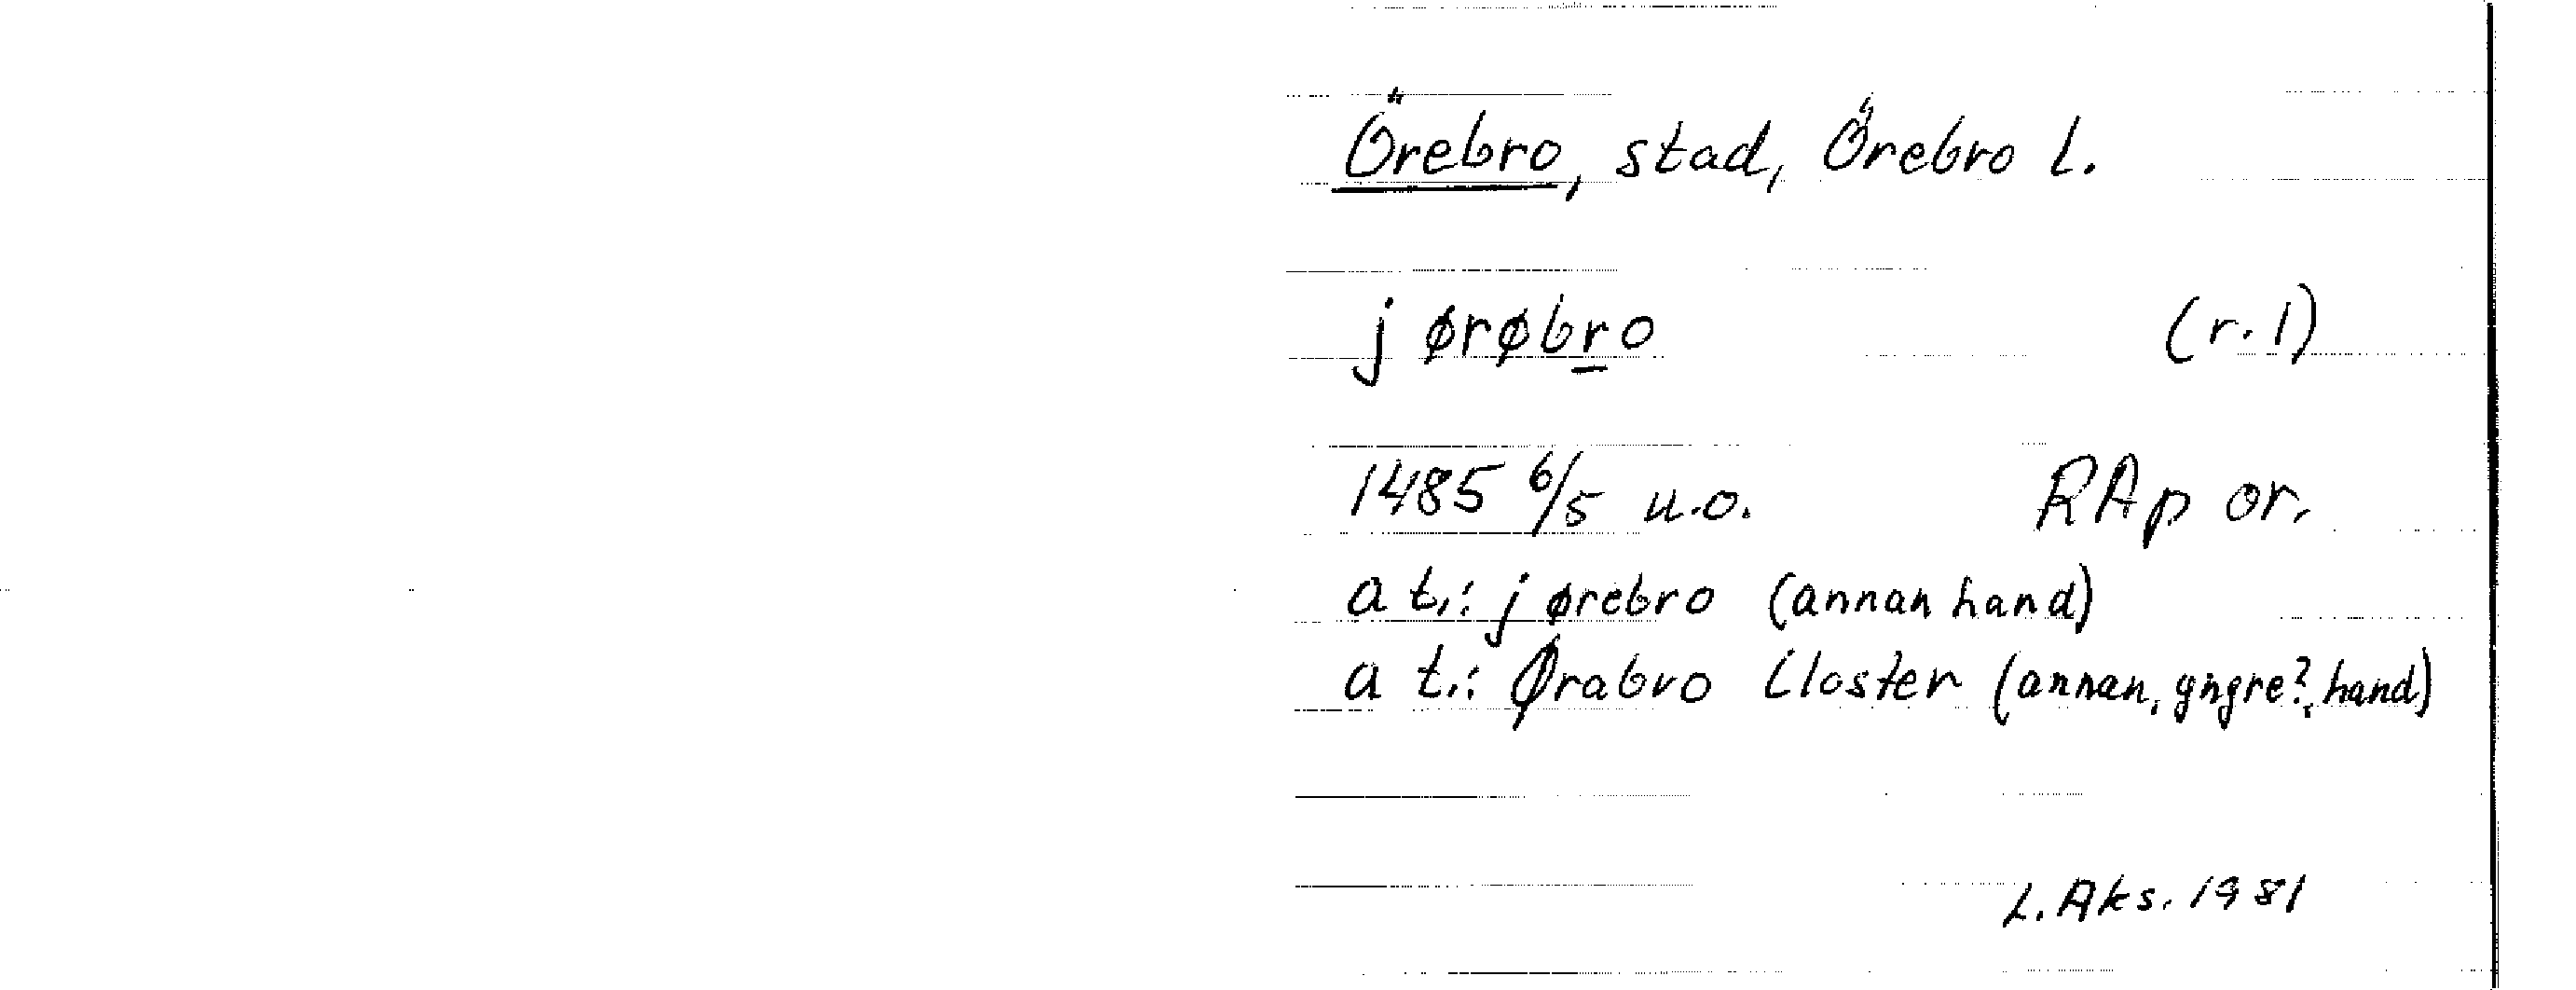 Örebro, stad, Örebro l.
j ørøbro (r. 1)
1485 6/5 u.o. RAp or.
a t.: j ørebro (annan hand)
a t.: Ørabro Closter (annan, yngre?, hand)
L. Aks. 1981